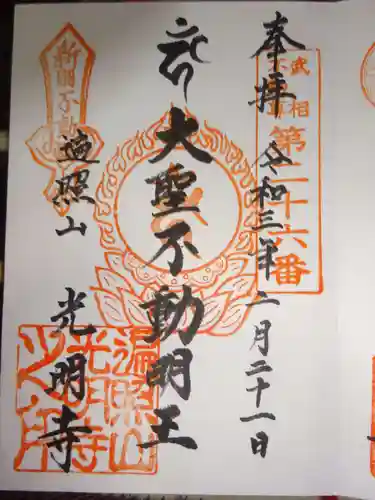 奉拝
令和三年二月二十一日
武相
不動
第二十六番
大聖不動明王
新明不動
遍照山
光明寺
遍照山
光明寺
之印